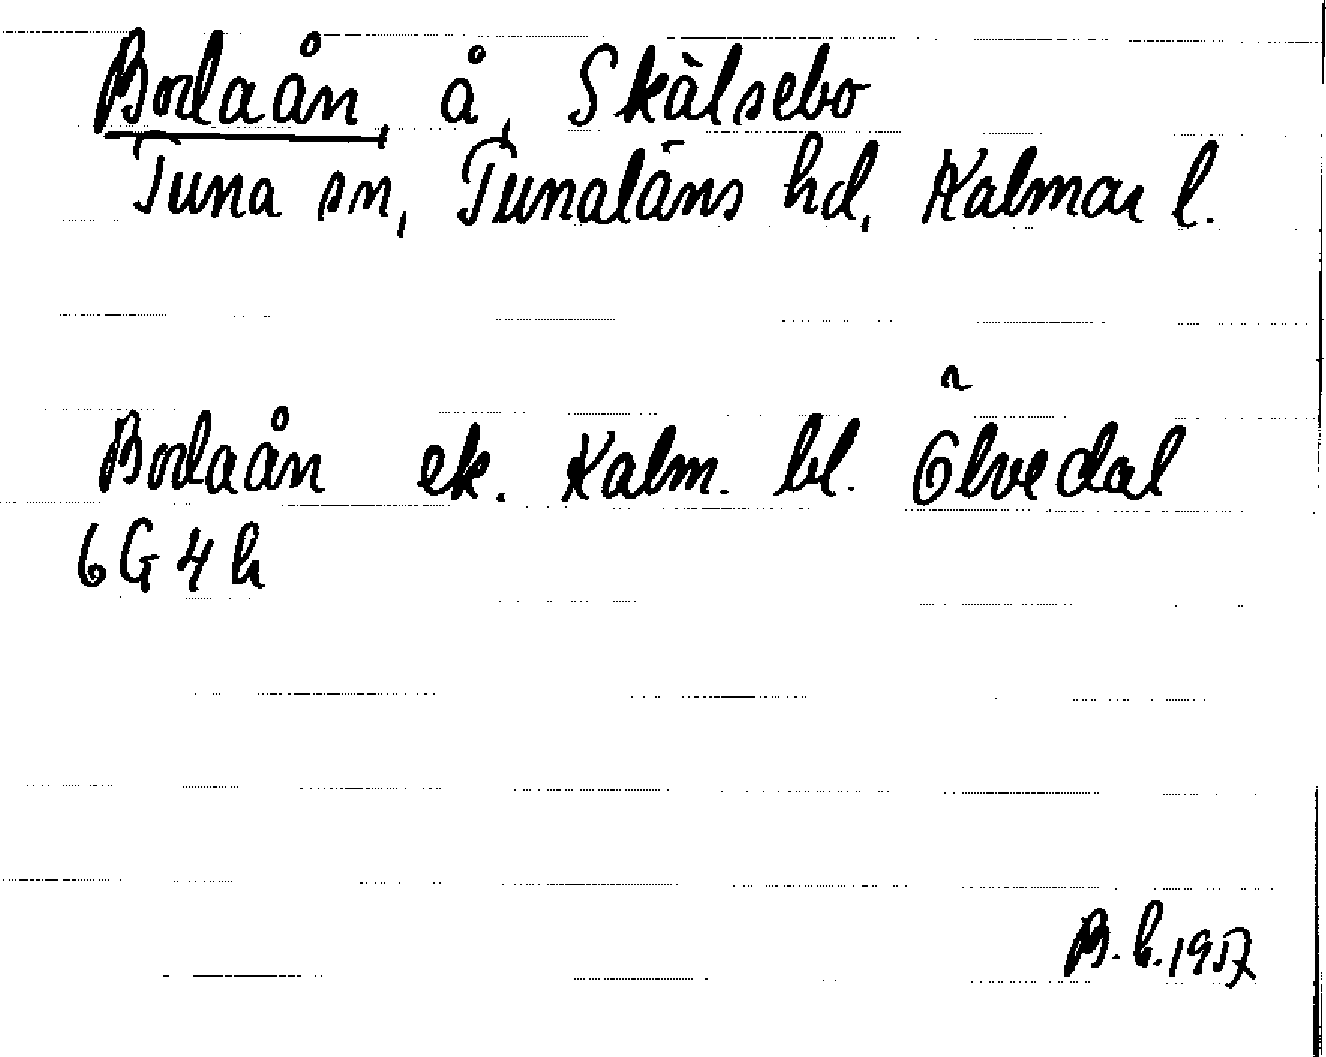 Bodaån, å, Skälsebo
Tuna sn, Tunaläns hd, Kalmar l.
Bodaån ek. Kalm. bl. Ölvedal
6G4h
B.L.1957